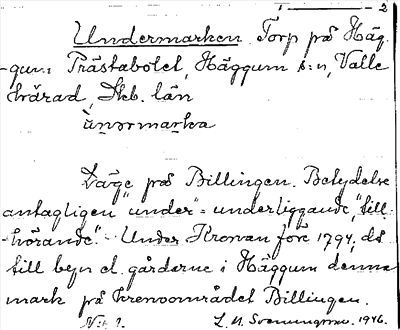 1 — 2
Undermarken. Torp på Häg-
gum: Prästabolet, Häggum s:n, Valle
härad, Skb. län
ùnərmarka
Läge på Billingen. Betydelse
antagligen "under" = underliggande, "till-
hörande". Under Kronan före 1794, då
till byn el. gårdarne i Häggum denna
mark på kronoområdet Billingen.
L. M. Svenungsson. 1946.